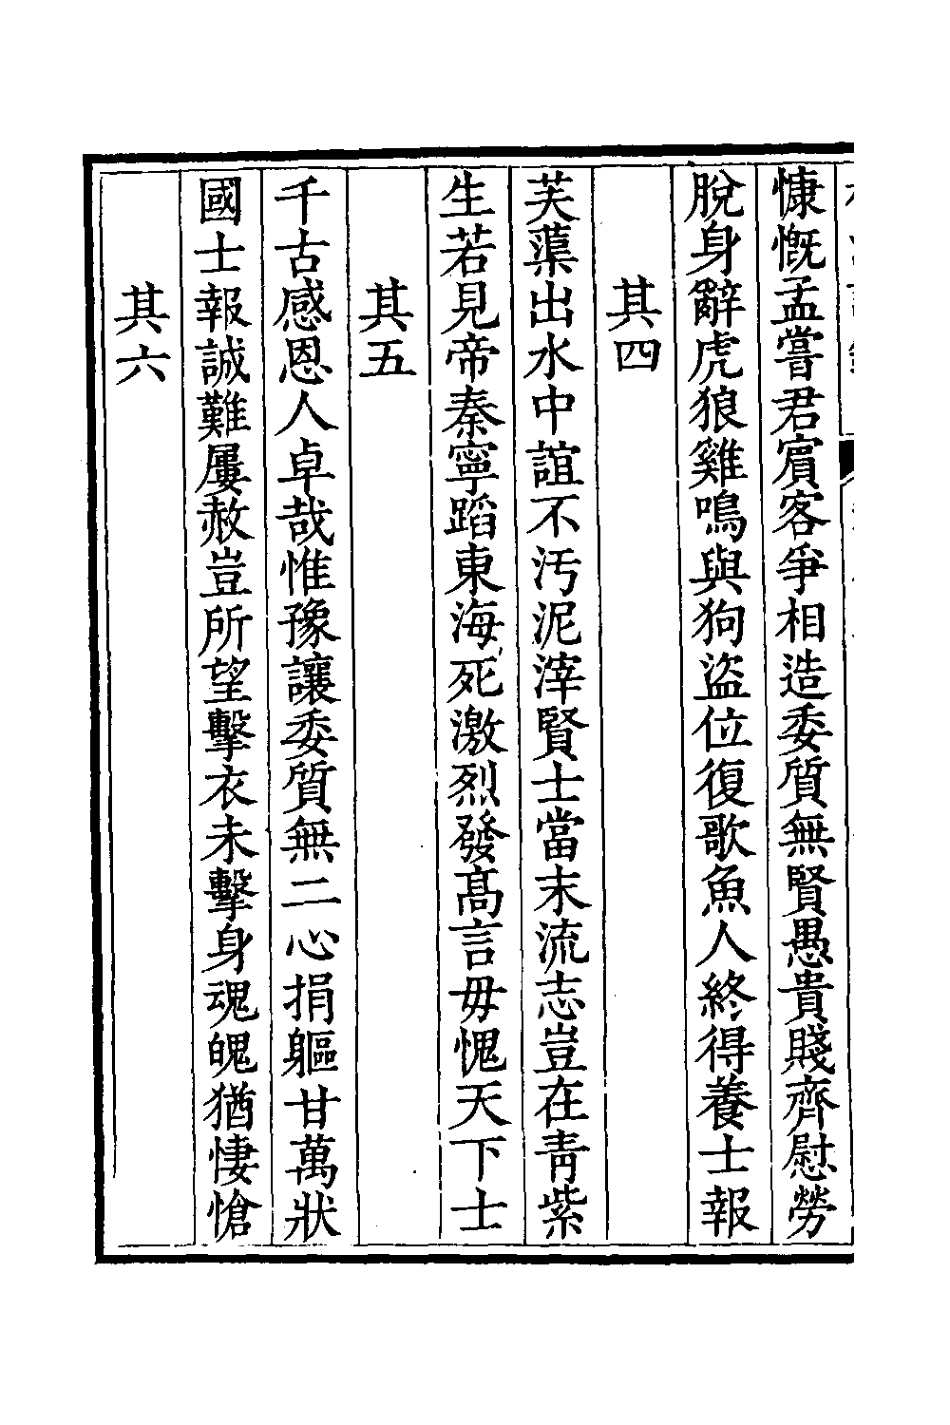 慷慨孟嘗君賔客爭相造委質無賢愚貴賤齊慰勞
脫身辭虎狼雞鳴與狗盜位復歌魚人終得養士報
其四
芙蕖出水中誼不汚泥滓賢士當末流志豈在靑紫
生若見帝秦寧蹈東海死激烈發髙言毋愧天下士
其五
千古感恩人卓哉惟豫讓委質無二心捐軀甘萬狀
國士報誠難屢赦豈所望擊衣未擊身魂魄猶悽愴
其六